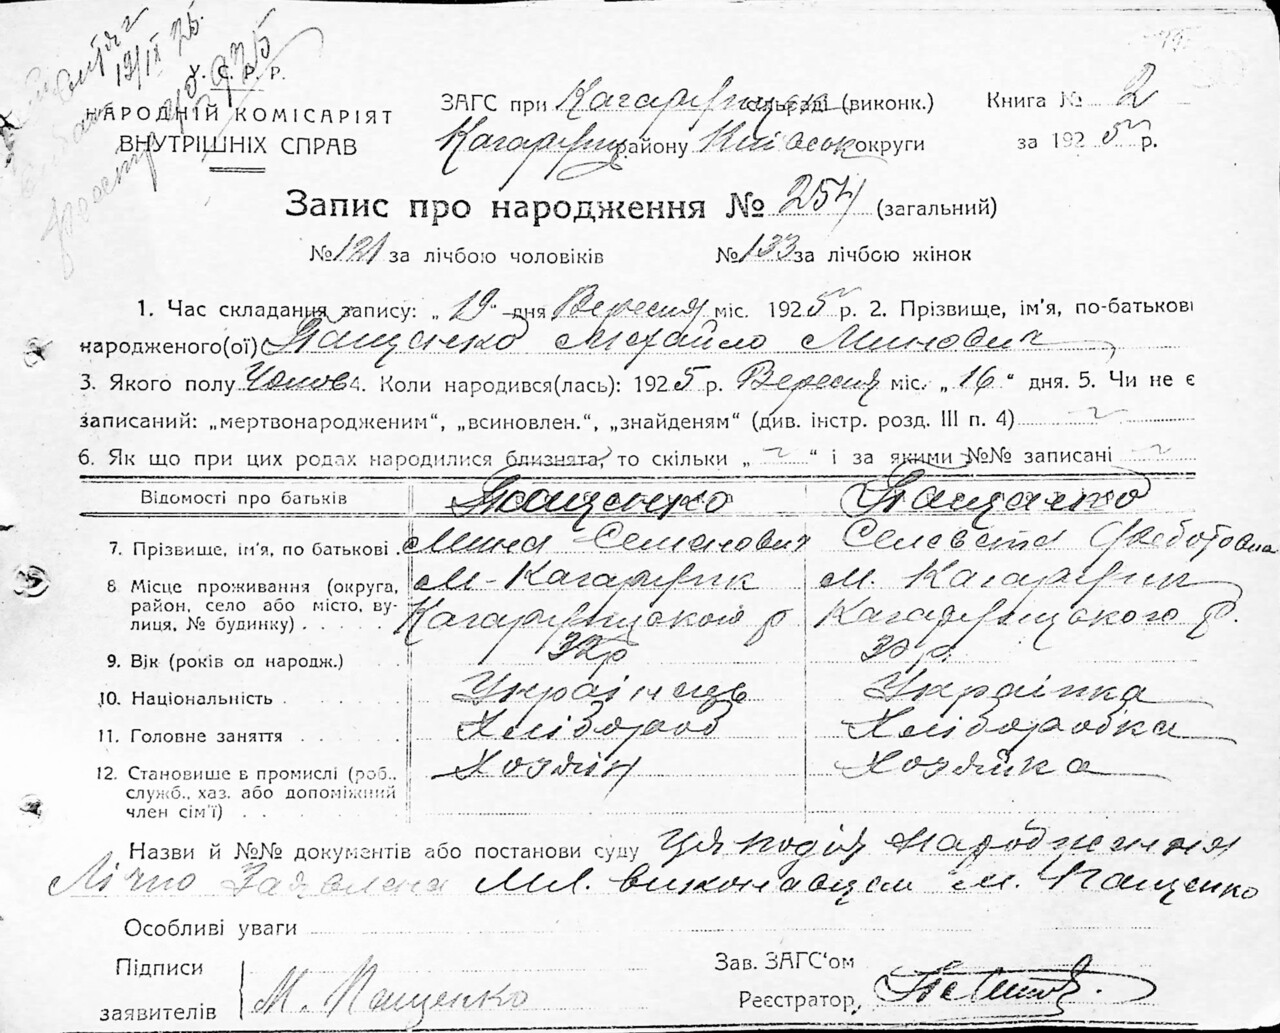 У. С. Р. Р.
НАРОДНІЙ КОМІСАРІЯТ
ВНУТРІШНІХ СПРАВ
ЗАГС при Кагарлицьк сільраді (виконк.) Книга № 2
Кагарлиц. району Київськ округи за 1925 р.
Запис про народження № 254 (загальний)
№ 121 за лічбою чоловіків № 133 за лічбою жінок
1. Час складання запису: „19“ дня Вересня міс. 1925 р. 2. Прізвище, ім'я, по-батькові
народженого(ої) Пащенко Михайло Минович
3. Якого полу Чолов 4. Коли народився(лась): 1925 р. Вересня міс. „16“ дня. 5. Чи не є
записаний: „мертвонародженим“, „всиновлен.“, „знайденям“ (див. інстр. розд. III п. 4)
6. Як що при цих родах народилися близнята, то скільки „ “ і за якими №№ записані
Відомості про батьків Пащенко Пащенко
7. Прізвище, ім'я, по батькові Мина Семенович Федотовна
8 Місце проживання (округа, м. Кагарлик м. Кагарлик
район, село або місто, ву- Кагарлицького р Кагарлицького р.
лиця, № будинку)
9. Вік (років од народж.) 32 р 30 р.
10. Національність Українець Українка
11. Головне заняття Хлібороб Хліборобка
12. Становище в промислі (роб., Хозяїн Хозяйка
служб., хаз. або допоміжний
член сім'ї)
Назви й №№ документів або постанови суду Ця подія народження
Лічно Заявлена виконавцем м. Пащенко
Особливі уваги
Підписи Зав. ЗАГС'ом
заявителів М. Пащенко Реєстратор,